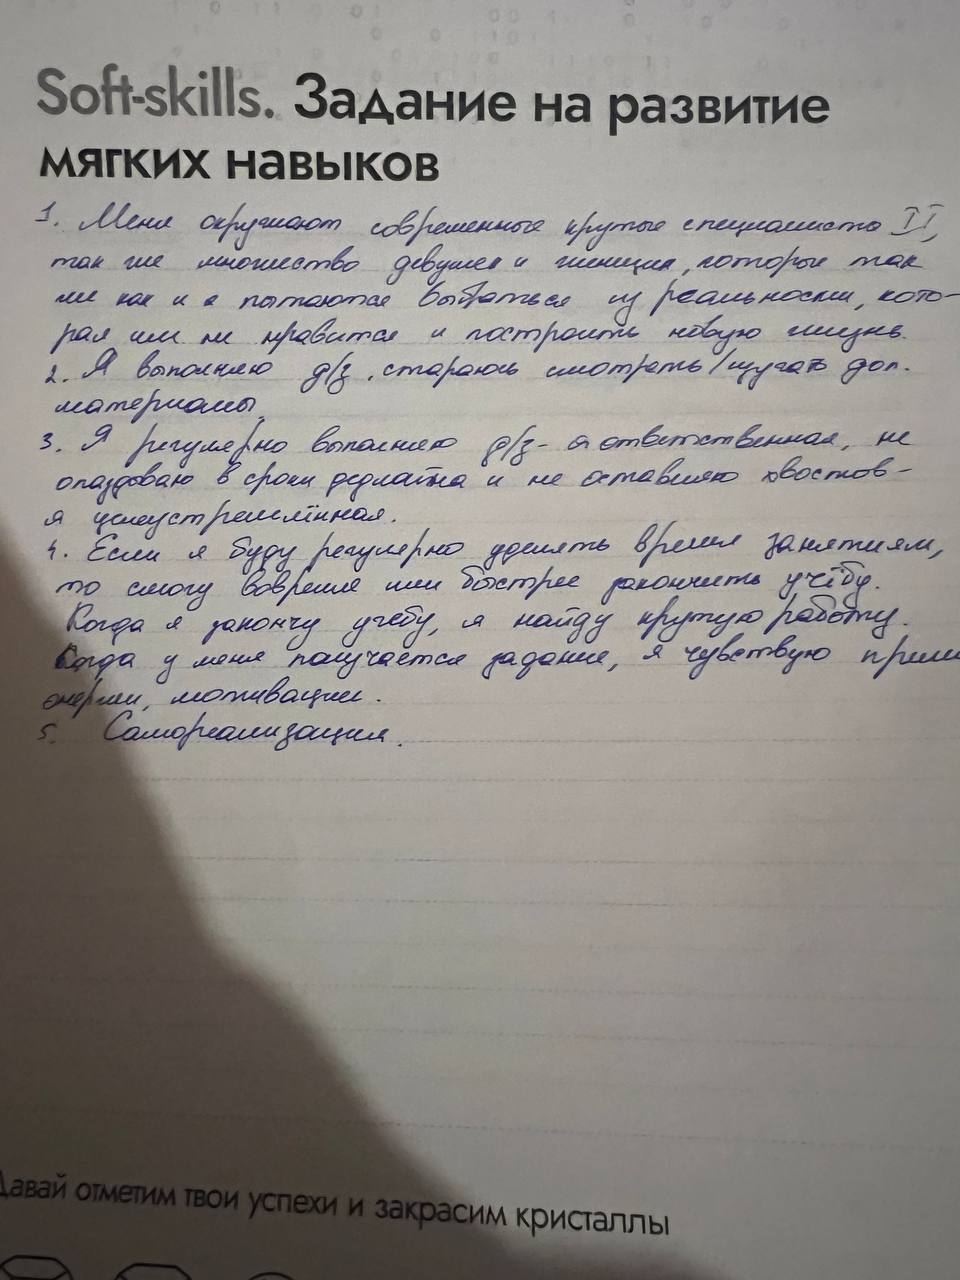 Soft-skills. Задание на развитие
мягких навыков
1. Меня окружают современные крутые специалисты IT,
так же множество девушек и женщин, которые так
же как и я пытаются выбраться из реальности, кото-
рая им не нравится и построить новую жизнь.
2. Я выполняю д/з, стараюсь смотреть/изучать доп.
материалы.
3. Я регулярно выполняю д/з - я ответственная, не
опаздываю в сроки дедлайна и не оставляю хвостов -
я целеустремлённая.
4. Если я буду регулярно уделять время занятиям,
то смогу вовремя или быстрее закончить учёбу.
Когда я закончу учёбу, я найду крутую работу.
Когда у меня получается задание, я чувствую прили
энергии, мотивации.
5. Самореализация.
Давай отметим твои успехи и закрасим кристаллы